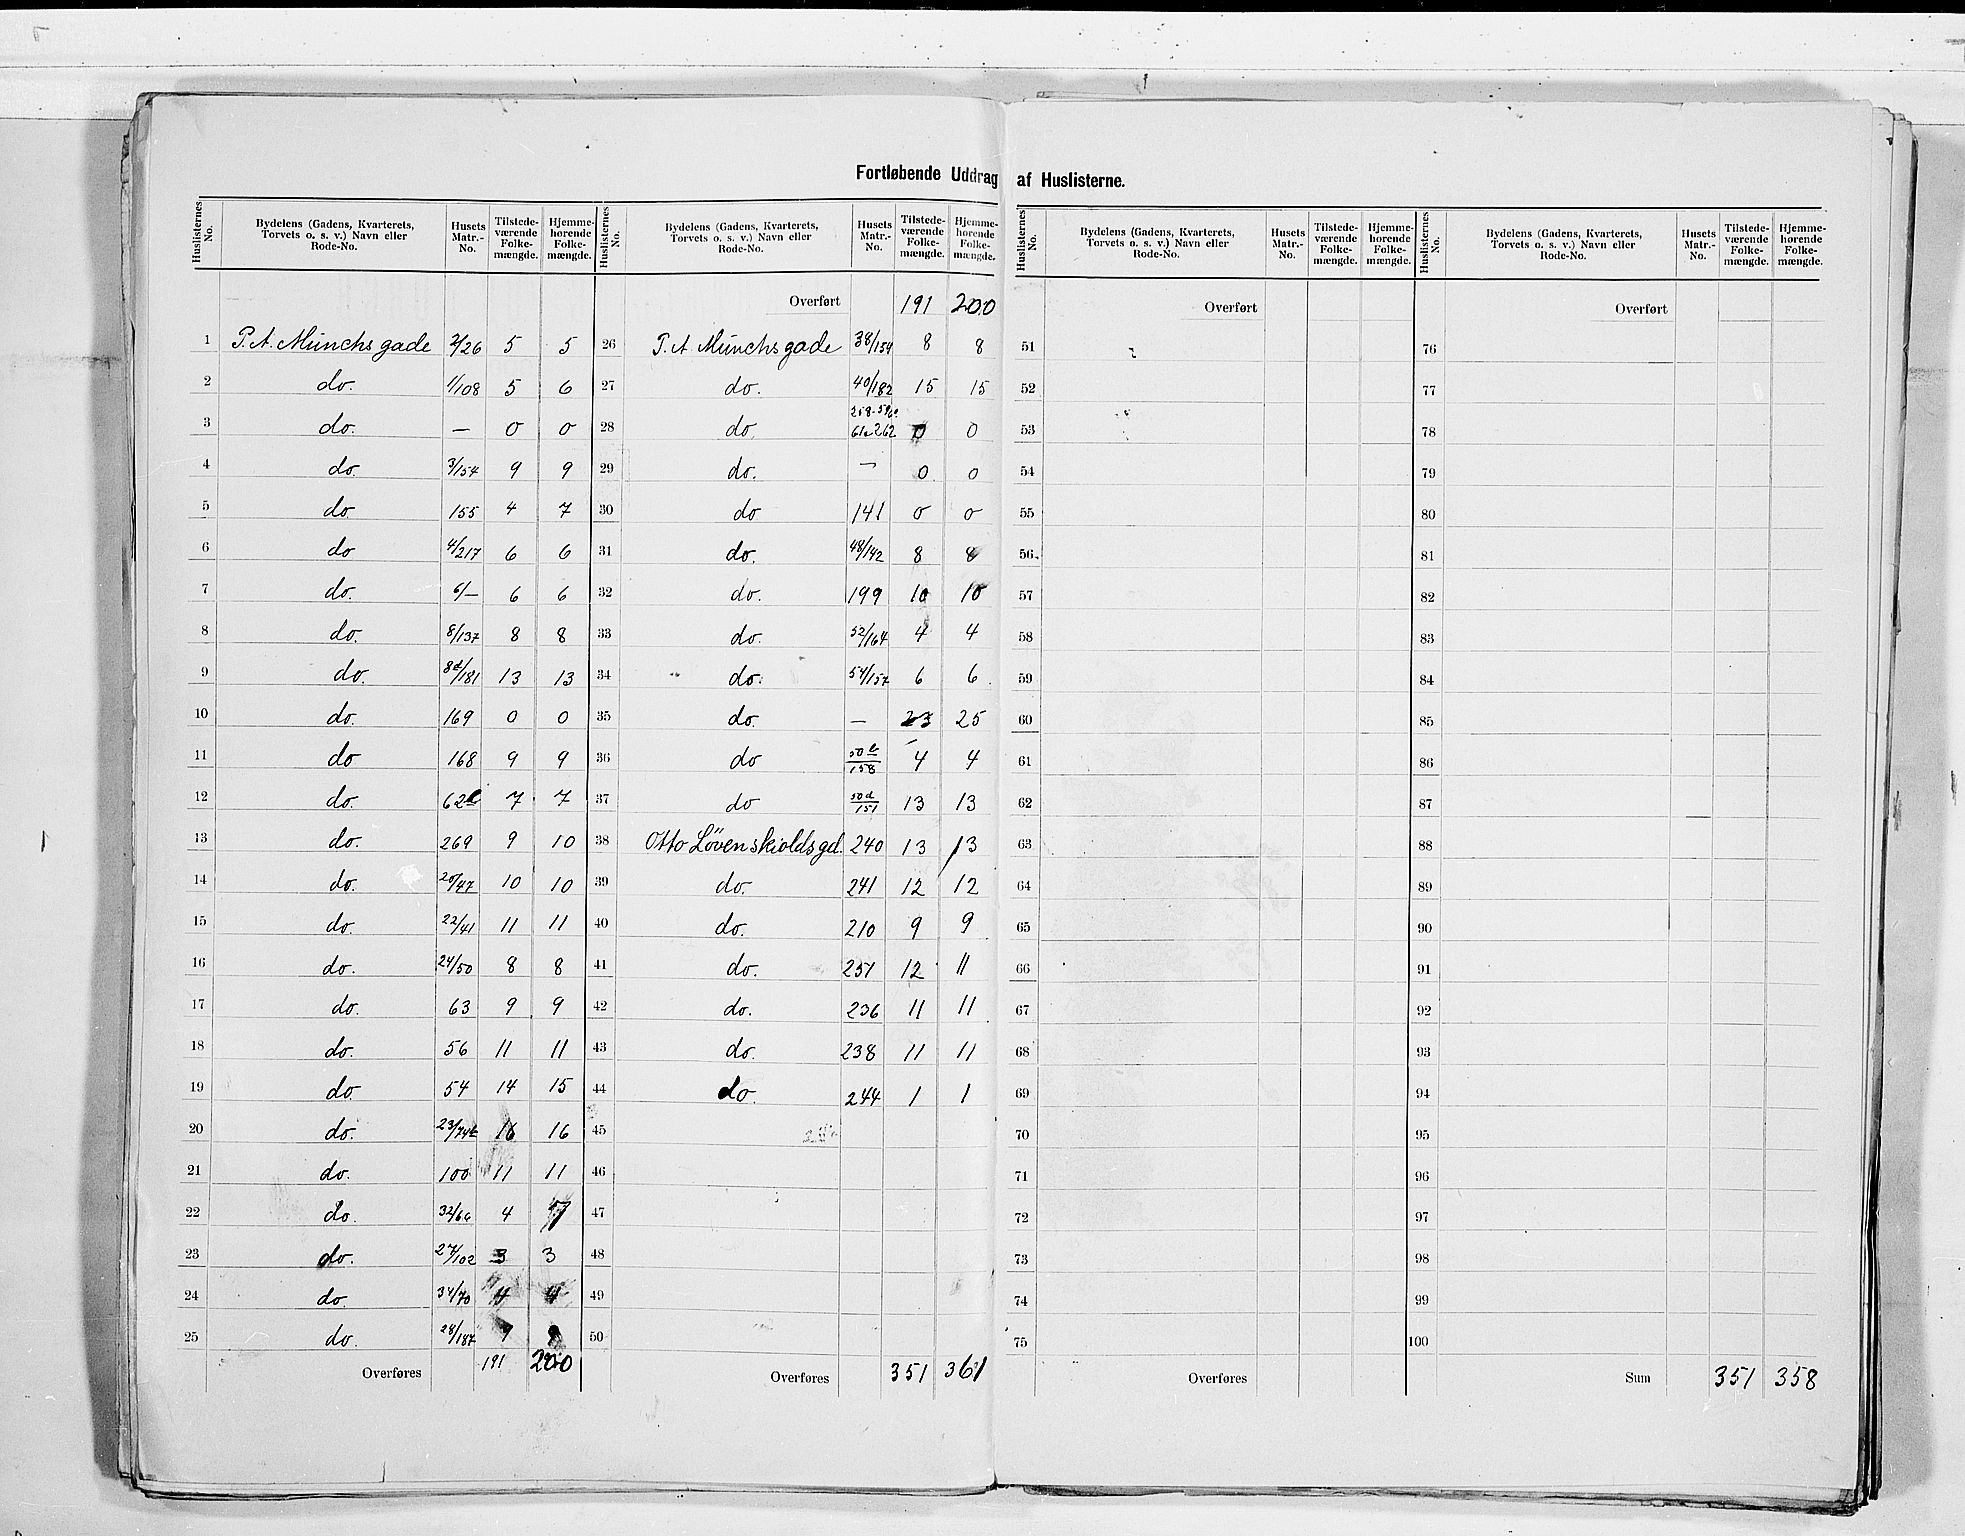 Fortløbende Uddrag af Huslisterne.
Huslisternes No. | Bydelens (Gadens, Kvarterets, Torvets o. s. v.) Navn eller Rode-No. | Husets Matr.-No. | Tilstede-værende Folke-mængde. | Hjemme-hørende Folke-mængde.
1 P. A. Munchs gade 2/26 5 5
2 do. 1/108 5 6
3 do. — 0 0
4 do. 3/154 9 9
5 do 155 4 7
6 do 4/217 6 6
7 do. 6/— 6 6
8 do. 8/137 8 8
9 do. 8d/181 13 13
10 do. 169 0 0
11 do 168 9 9
12 do. 62 7 7
13 do. 269 9 10
14 do. 20/47 10 10
15 do. 22/41 11 11
16 do. 24/50 8 8
17 do. 63 9 9
18 do. 56 11 11
19 do. 54 14 15
20 do. 23/74b 16 16
21 do. 100 11 11
22 do. 32/66 4 7
23 do. 27/102 3 3
24 do. 34/70 4 4
25 do. 28/187 9 9
Overføres 191 200
Huslisternes No. | Bydelens (Gadens, Kvarterets, Torvets o. s. v.) Navn eller Rode-No. | Husets Matr.-No. | Tilstede-værende Folke-mængde. | Hjemme-hørende Folke-mængde.
Overført 191 200
26 P. A. Munchs gade 38/154 8 8
27 do. 40/182 15 15
28 do. 0 0
29 do. — 0 0
30 do 141 0 0
31 do. 48/142 8 8
32 do. 199 10 10
33 do. 52/164 4 4
34 do. 54/157 6 6
35 do. — 23 25
36 do 50b/158 4 4
37 do 50d/151 13 13
38 Otto Løvenskiolds gd. 240 13 13
39 do. 241 12 12
40 do. 210 9 9
41 do. 251 12 11
42 do. 236 11 11
43 do. 238 11 11
44 do. 244 1 1
45
46
47
48
49
50
Overføres 351 361
Huslisternes No. | Bydelens (Gadens, Kvarterets, Torvets o. s. v.) Navn eller Rode-No. | Husets Matr.-No. | Tilstede-værende Folke-mængde. | Hjemme-hørende Folke-mængde.
Overført
51
52
53
54
55
56
57
58
59
60
61
62
63
64
65
66
67
68
69
70
71
72
73
74
75
Overføres
Huslisternes No. | Bydelens (Gadens, Kvarterets, Torvets o. s. v.) Navn eller Rode-No. | Husets Matr.-No. | Tilstede-værende Folke-mængde. | Hjemme-hørende Folke-mængde.
Overført
76
77
78
79
80
81
82
83
84
85
86
87
88
89
90
91
92
93
94
95
96
97
98
99
100
Sum 351 358